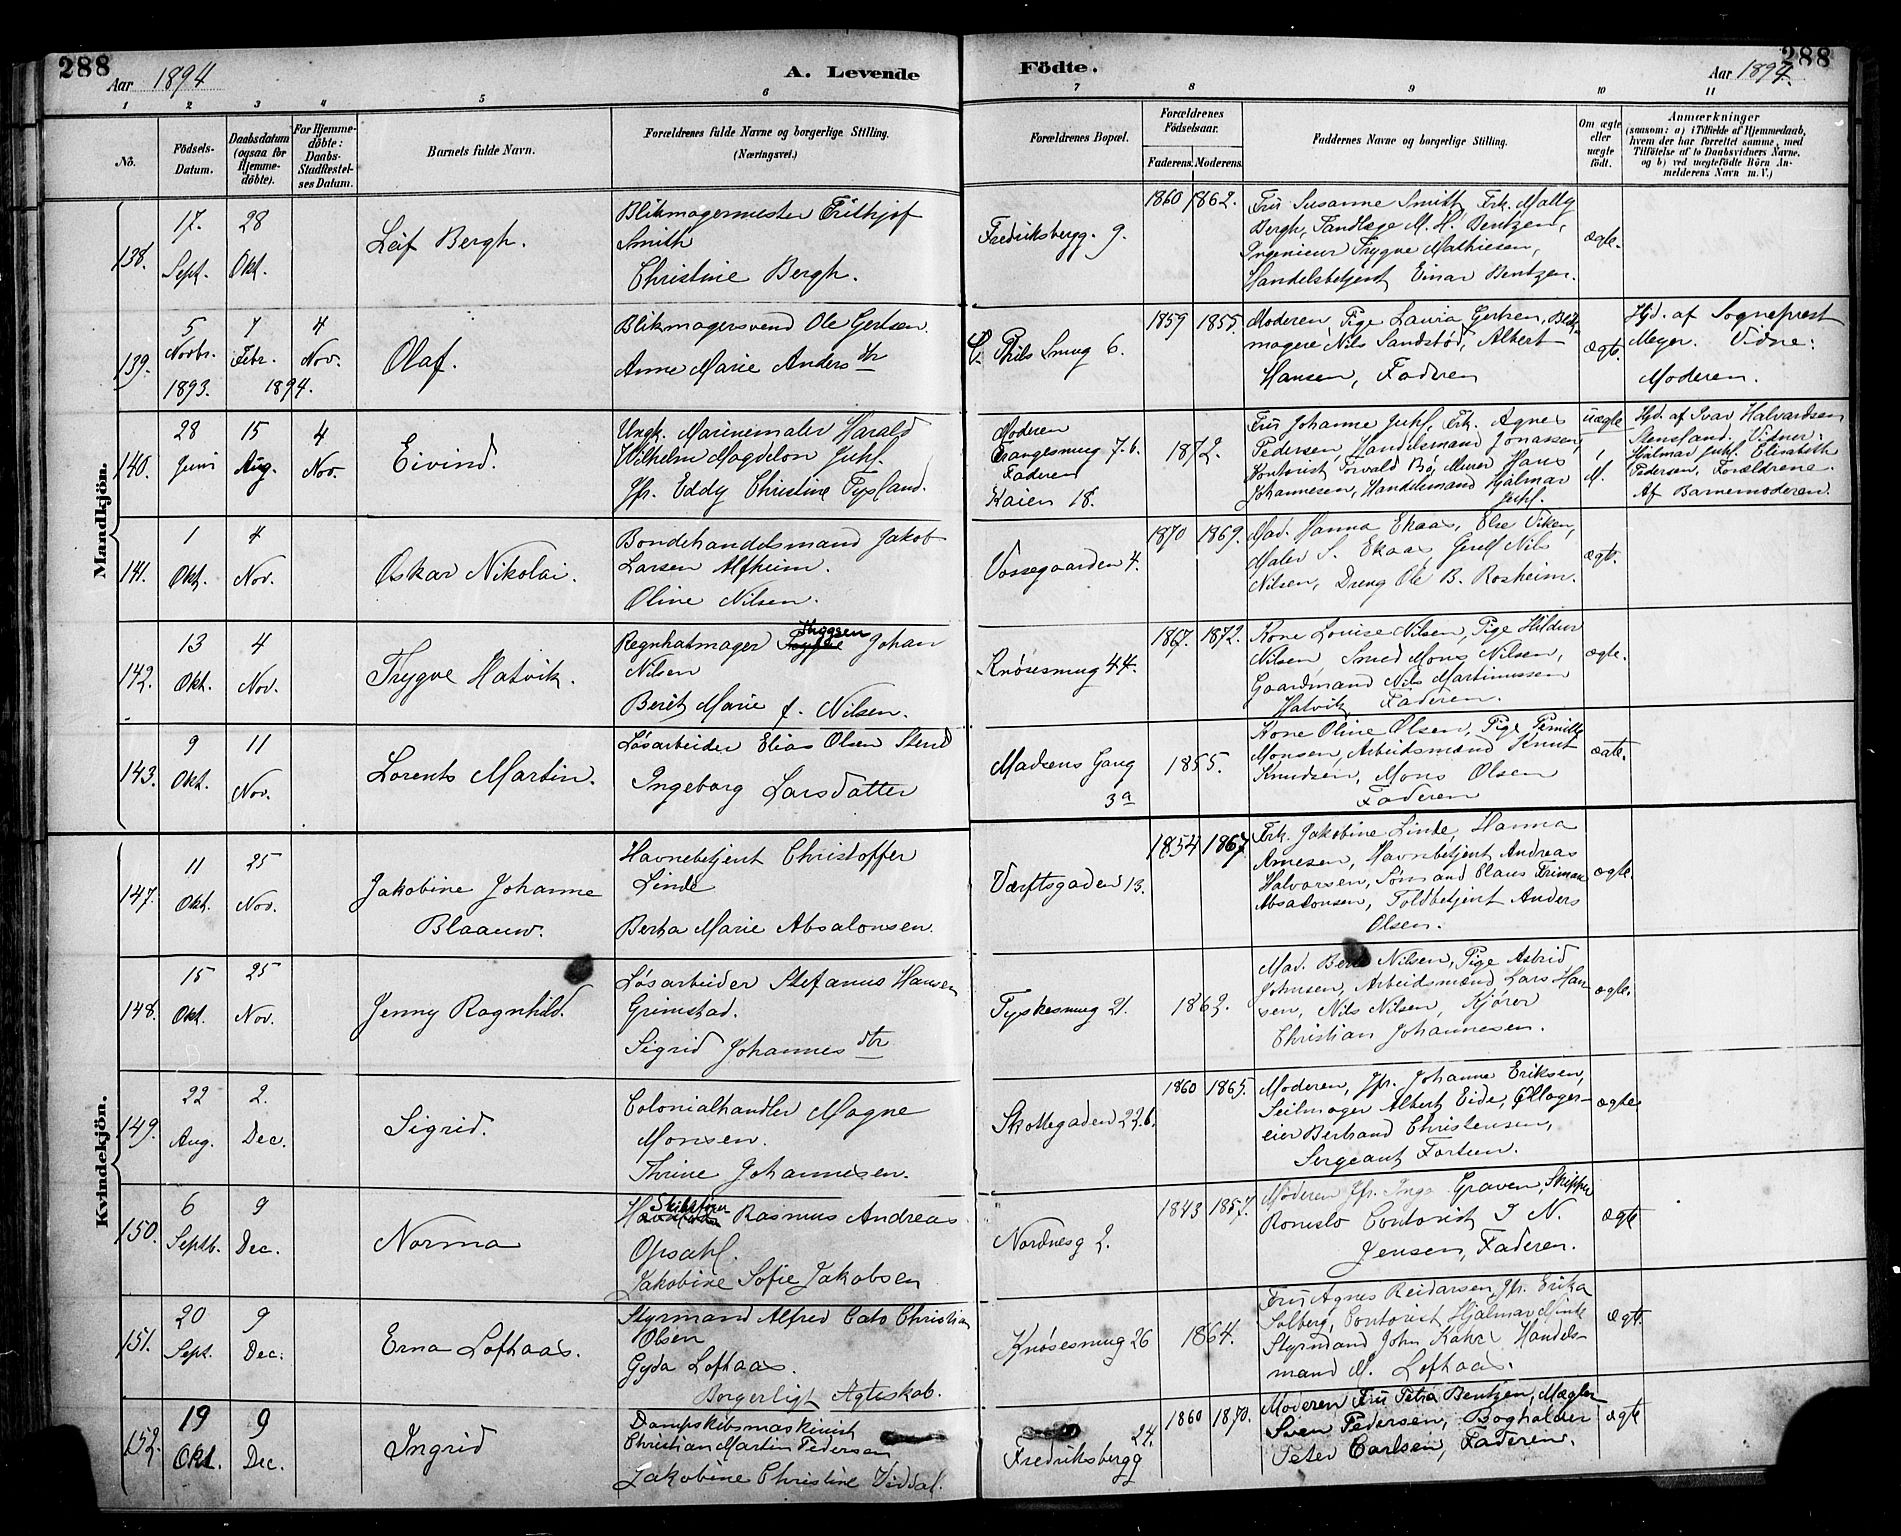 288
Aar 1894
A. Levende
Födte.
288
Aar 1894.
1 2 3 4 5 6 7 8 9 10 11
No.
Födsels-
Datum.
Daabsdatum
(ogsaa for
Hjemme-
döbte).
For Hjemme-
döbte:
Daabs-
Stadfæstel-
ses Datum.
Barnets fulde Navn.
Forældrenes fulde Navne og borgerlige Stilling.
(Næringsvei.)
Forældrenes Bopæl.
Forældrenes
Födselsaar.
Faderens. Moderens.
Faddernes Navne og borgerlige Stilling.
Om ægte
eller
uægte
födt.
Anmærkninger
(saasom: a) i Tilfælde af Hjemmedaab,
hvem der har forrettet samme, med
Tilföielse af to Daabsvidners Navne,
og b) ved uegtefödte Börn An-
melderens Navn m. V.)
Mandkjön.
138.
17.
Sept.
28
Okt.
Leif Bergh.
Blikmagermester Frithjof
Smith
Christine Bergh.
Fredriksbergg. 9.
1860 1862.
Fru Susanne Smith Frk. Mally
Bergh, Tandlæge M. H. Bentzen,
Ingenieur Trygve Mathiesen,
Handelsbetjent Einar Bentzen.
ægte.
139.
5
Novbr.
1893.
7
Febr.
1894.
4
Nov.
Olaf.
Blikmagersvend Ole Gertsen
Anne Marie Andersdtr
Smug 6.
1859 1855.
Moderen, Pige Laura Gertsen, Blik-
magere Nils Sandstød, Albert
Hansen, Faderen
ægte.
Hjd. af Sogneprest
Meyer. Vidne:
Moderen.
140.
28
Juni
15
Aug.
4
Nov.
Eivind.
Ungk. Marinemaler Harald
Wilhelm Magdelon Juhl.
Jfr. Eddy Christine Tysland.
Moderen
Erangesmug 7.b.
Faderen
Kaien 18.
1872.
Fru Johanne Juhl, Frk. Agnes
Pedersen, Handelsmand Jonassen,
Kontorist Torvald Bø, Murer Hans
Johannesen, Handelsmand Hjalmar
Juhl.
uægte
M.
Hjd. af Ivar Halvardsen
Stensland. Vidner:
Hjalmar Juhl, Elisabeth
Pedersen, Forældrene.
Af Barnemoderen.
141.
1
Okt.
4
Nov.
Oskar Nikolai.
Bondehandelsmand Jakob
Larsen Alfheim.
Oline Nilsen.
Vossegaarden 4.
1870 1869.
Mad. Hanna Ekaas, Else Viken,
Maler S. Ekaas, Gesell Nils
Nilsen, Dreng Ole B. Rosheim.
ægte.
142.
13
Okt.
4
Nov.
Trygve Hatvik.
Thygsen
Regnhatmager Johan
Nilsen
Berit Marie f. Nilsen.
Knøsesmug 44.
1867. 1872.
Kone Louise Nilsen, Pige Hildur
Nilsen, Smed Mons Nilsen,
Gaardmand Nils Martinussen
Hatvik Faderen.
ægte.
143.
9
Okt.
11
Nov.
Lorents Martin.
Løsarbeider Elias Olsen Stend
Ingeborg Larsdatter
Madsens Gang
3a
1855.
Kone Oline Olsen, Pige Pernille
Monsen, Arbeidsmænd Knut
Knudsen, Mons Olsen
Faderen
ægte.
Kvindekjön.
147.
11
Okt.
25
Nov.
Jakobine Johanne
Blaauw.
Havnebetjent Christoffer
Linde
Berta Marie Absalonsen
Værftsgaden 13.
1854 1867
Frk. Jakobine Linde, Hanna
Arnesen, Havnbetjent Andreas
Halvorsen, Sømand Claus Friman
Absalonsen, Toldbetjent Anders
Olsen.
ægte.
148.
15
Okt.
25
Nov.
Jenny Ragnhild.
Løsarbeider Stefanus Hansen
Grimstad.
Sigrid Johannesdtr
Tyskesmug 21.
1862.
Mad. Nilsen, Pige Astrid
Johnsen, Arbeidsmænd Lars Han-
sen, Nils Nilsen, Kjører
Christian Johannesen.
ægte.
149.
22
Aug.
2.
Dec.
Sigrid.
Colonialhandler Magne
Monsen.
Thrine Johannesen.
Skottegaden 22.b.
1860 1865.
Moderen, Jfr. Johanne Eriksen,
Seilmager Albert Eide, Øllager-
eier Bertrand Christensen,
Sergeant Fortun.
ægte
150.
6
Septb.
9
Dec.
Norma
Skibsfører
Rasmus Andreas
Opsahl.
Jakobine Sofie Jakobsen
Nordnesg 2.
1843 1857.
Moderen Jfr. Inga Graven, Skipper
Contorist J N.
Jensen, Faderen.
ægte
151.
20
Sept.
9
Dec.
Erna Lofthaas.
Styrmand Alfred Cato Christian
Olsen
Gyda Lofthaas.
Borgerligt Ægteskab.
Knøsesmug 26
1864.
Fru Agnes Reidarsen, Jfr. Erika
Solberg, Contorist Hjalmar Minde
Styrmand John Kahrs Handels-
mand M. Lofthaas.
ægte
152.
19
Okt.
9
Dec.
Ingrid
Dampskibsmaskinist
Christian Martin Pedersen
Jakobine Christine Viddal.
24.
Fredriksbergg
1860 1870.
Moderen Fru Petra Bentzen, Mægler
Sven Pedersen, Bogholder
Peter Carlsen, Faderen.
ægte